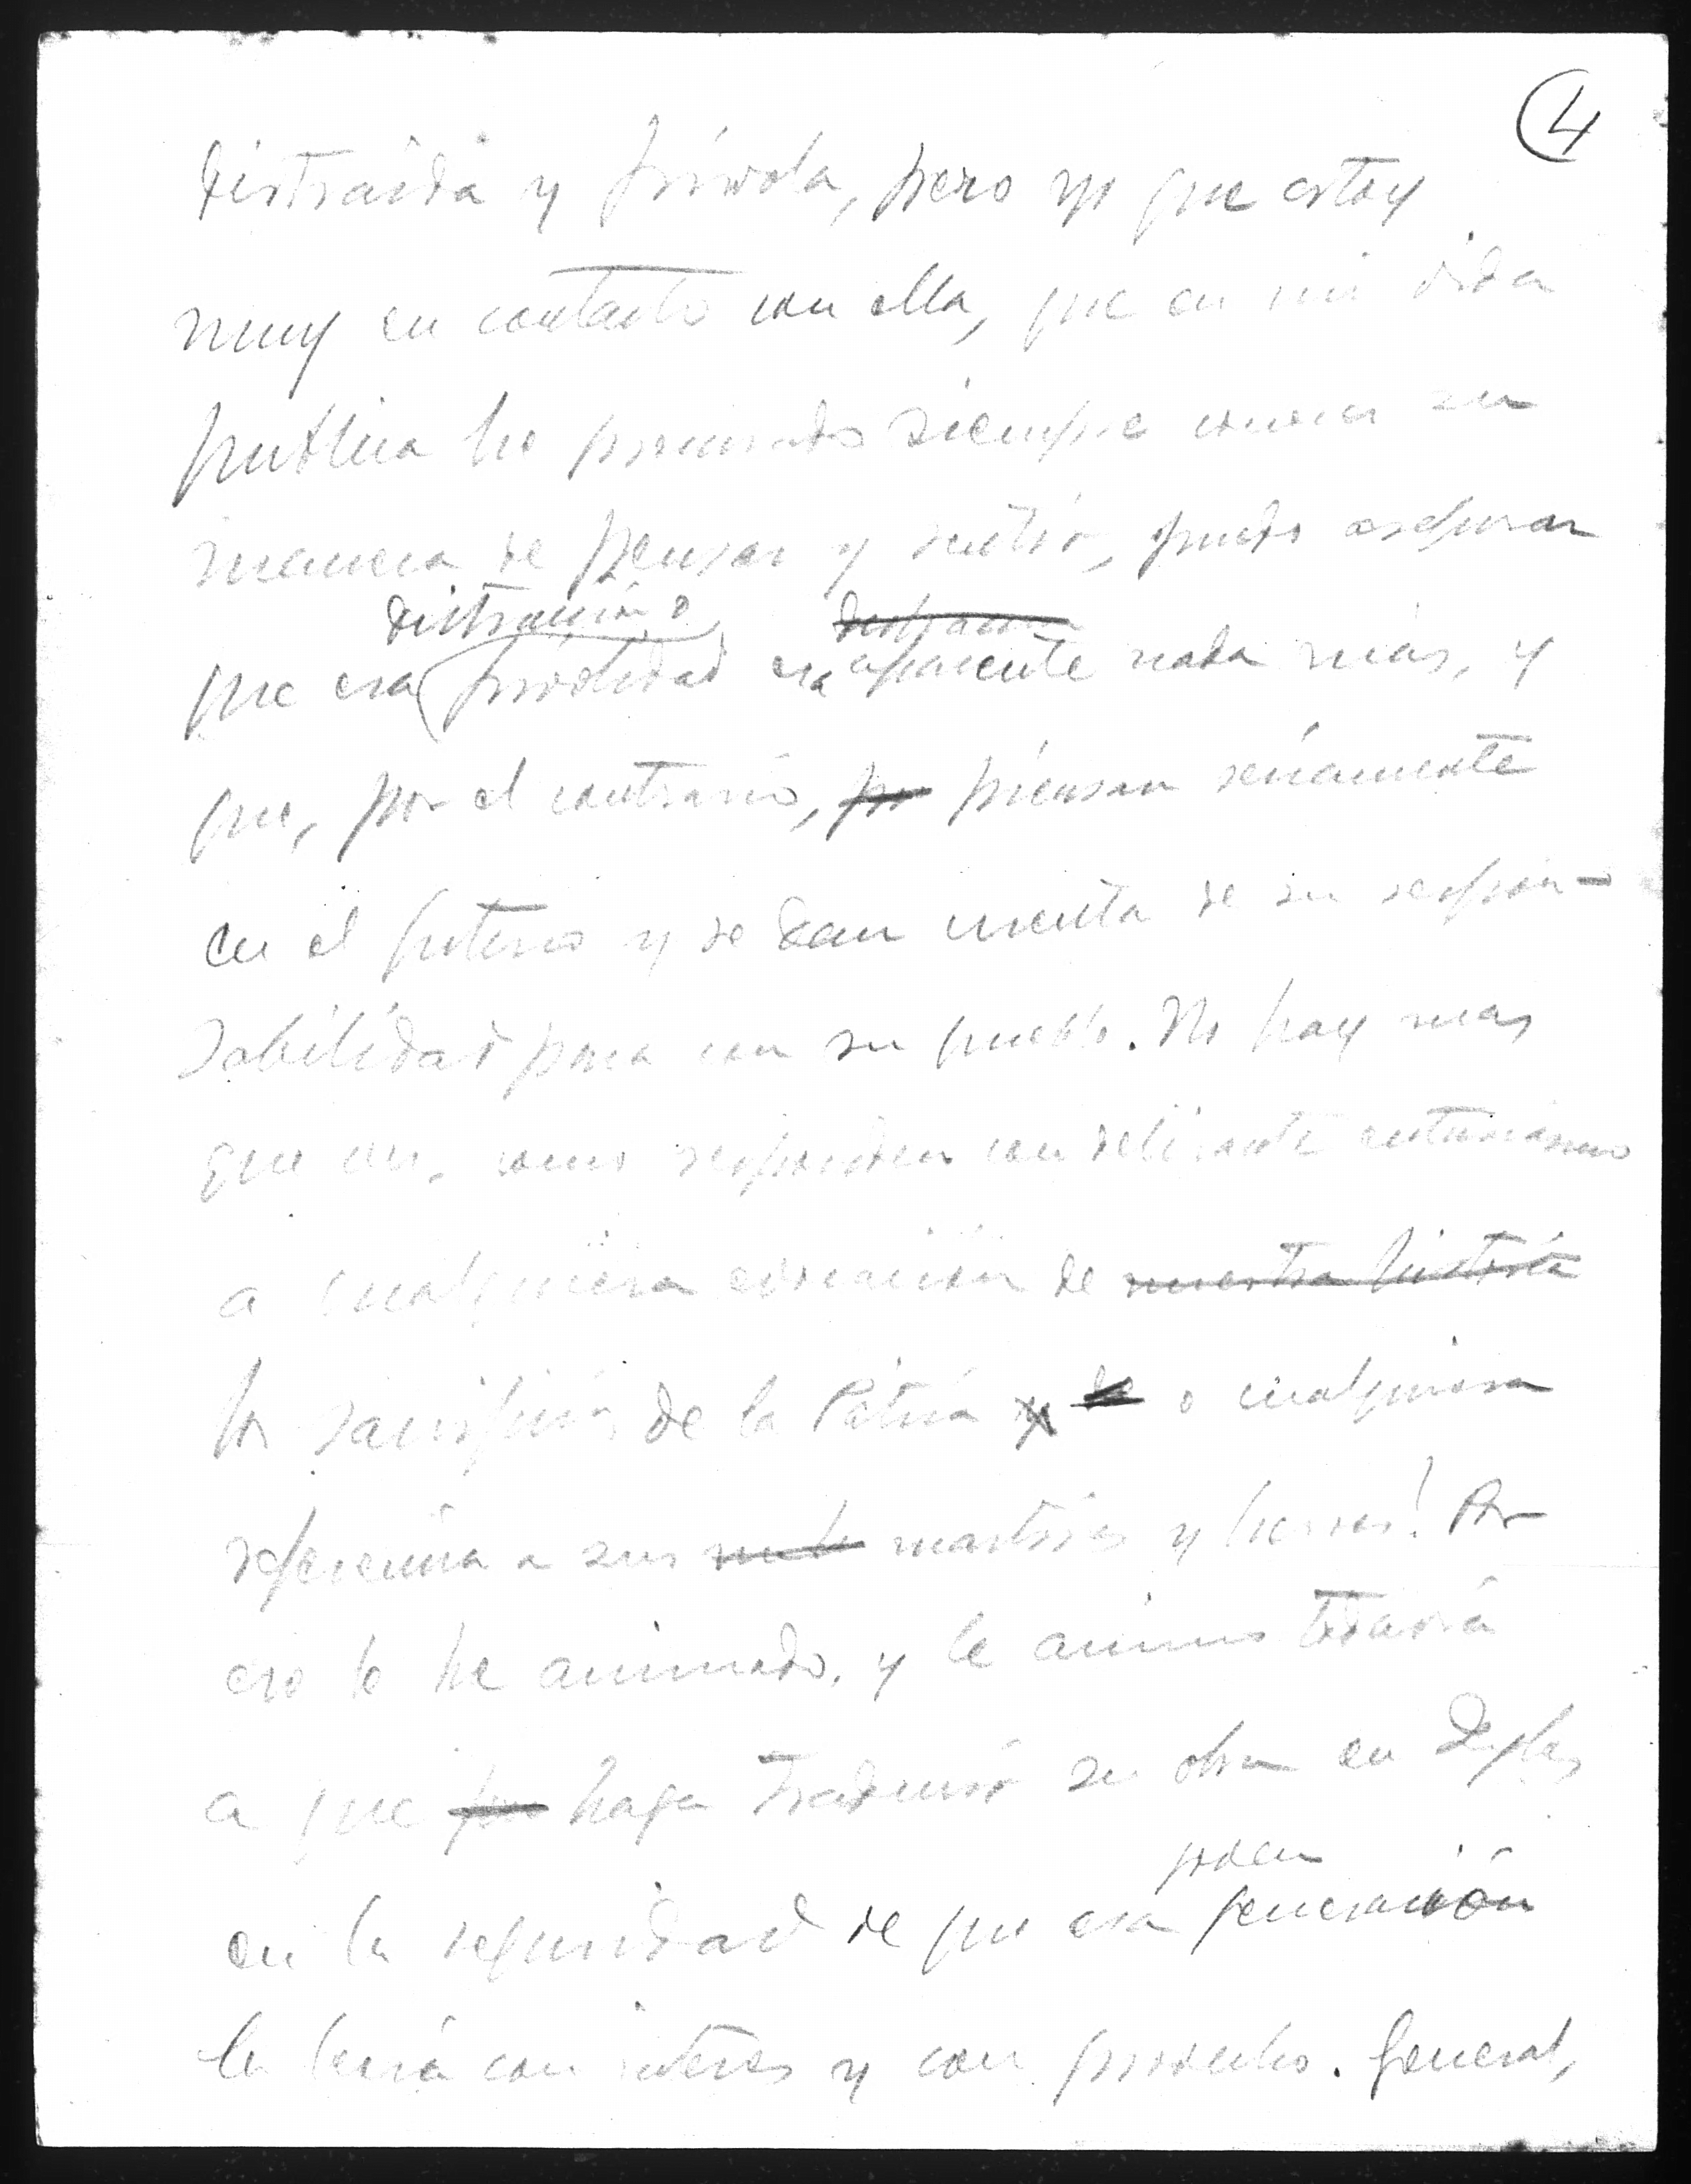 4
distraida y frívola, pero yo que estoy
muy en contacto con ella, que en mi vida
publica he procurado siempre conocer su
manera de pensar y sentir, puedo asegurar
distracción o distraccion
que esa frivolidad era aparente nada más, y
que, por el contrario, po piensan seriamente
en el futuro y se dan cuenta de su respon-
sabilidad para con su pueblo. No hay mas
que ver, como responden con delirante entusiasmo
a cualquiera evocación de nuestra historia
los sacrificios de la Patria y de o cualquiera
referencia a sus martires y heroes! Por
eso le he animado, y le animo todavía
a que haga traducir su obra en Ingles
joven
en la seguridad de que esa generación
la leerá con interes y con provecho. General,